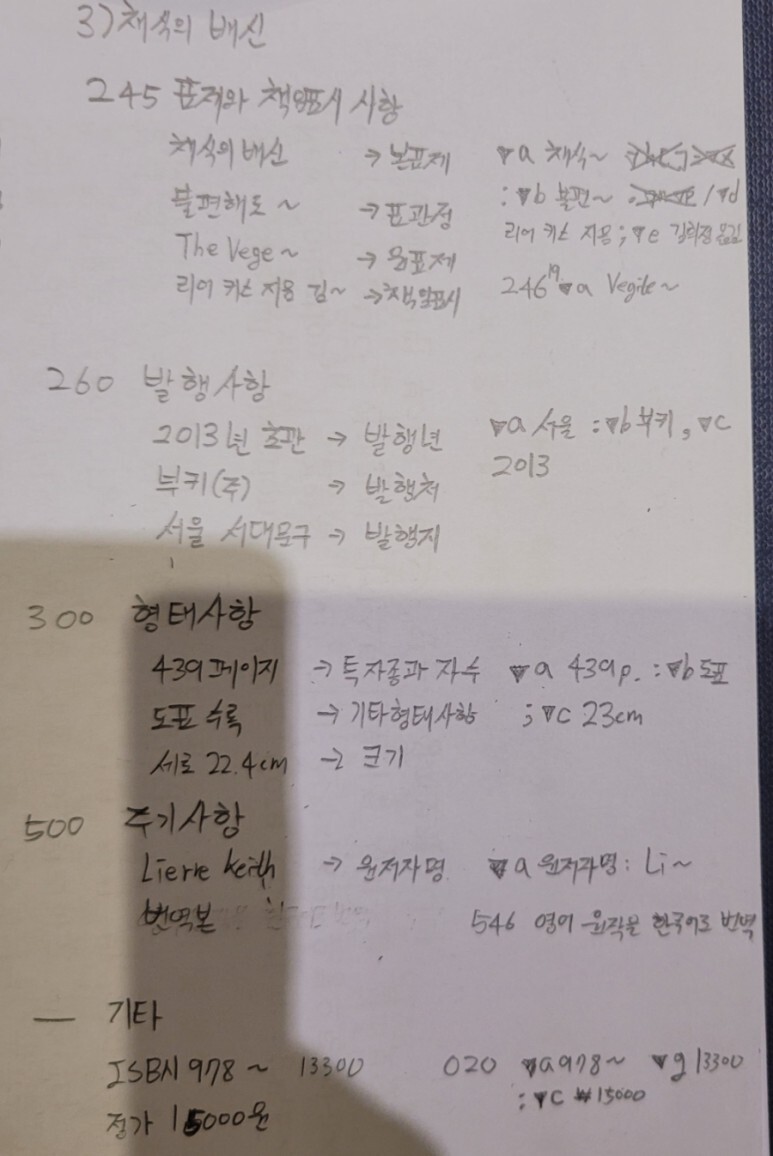 3) 채식의 배신
245 표제와 책임표시 사항
채식의 배신 → 본표제 ▼a 채식~
불편해도 ~ → 표관정 : ▼b 불편~ / ▼d
The Vege ~ → 원표제 리어 키스 지음 ; ▼e 김희정 옮김
리어 키스 지음 김~ → 책임표시 246 19 ▼a Vegite~
260 발행사항
2013년 초판 → 발행년 ▼a 서울 : ▼b 부키, ▼c
부키(주) → 발행처 2013
서울 서대문구 → 발행지
300 형태사항
439페이지 → 특자종과 자수 ▼a 439p. : ▼b 도표
도표 수록 → 기타형태사항 ; ▼c 23cm
세로 22.4cm → 크기
500 주기사항
Lierre Keith → 원저자명 ▼a 원저자명: Li~
번역본 546 영어 원작을 한국어로 번역
— 기타
ISBN 978 ~ 13300 020 ▼a 978~ ▼g 13300
정가 15000원 : ▼c ₩15000